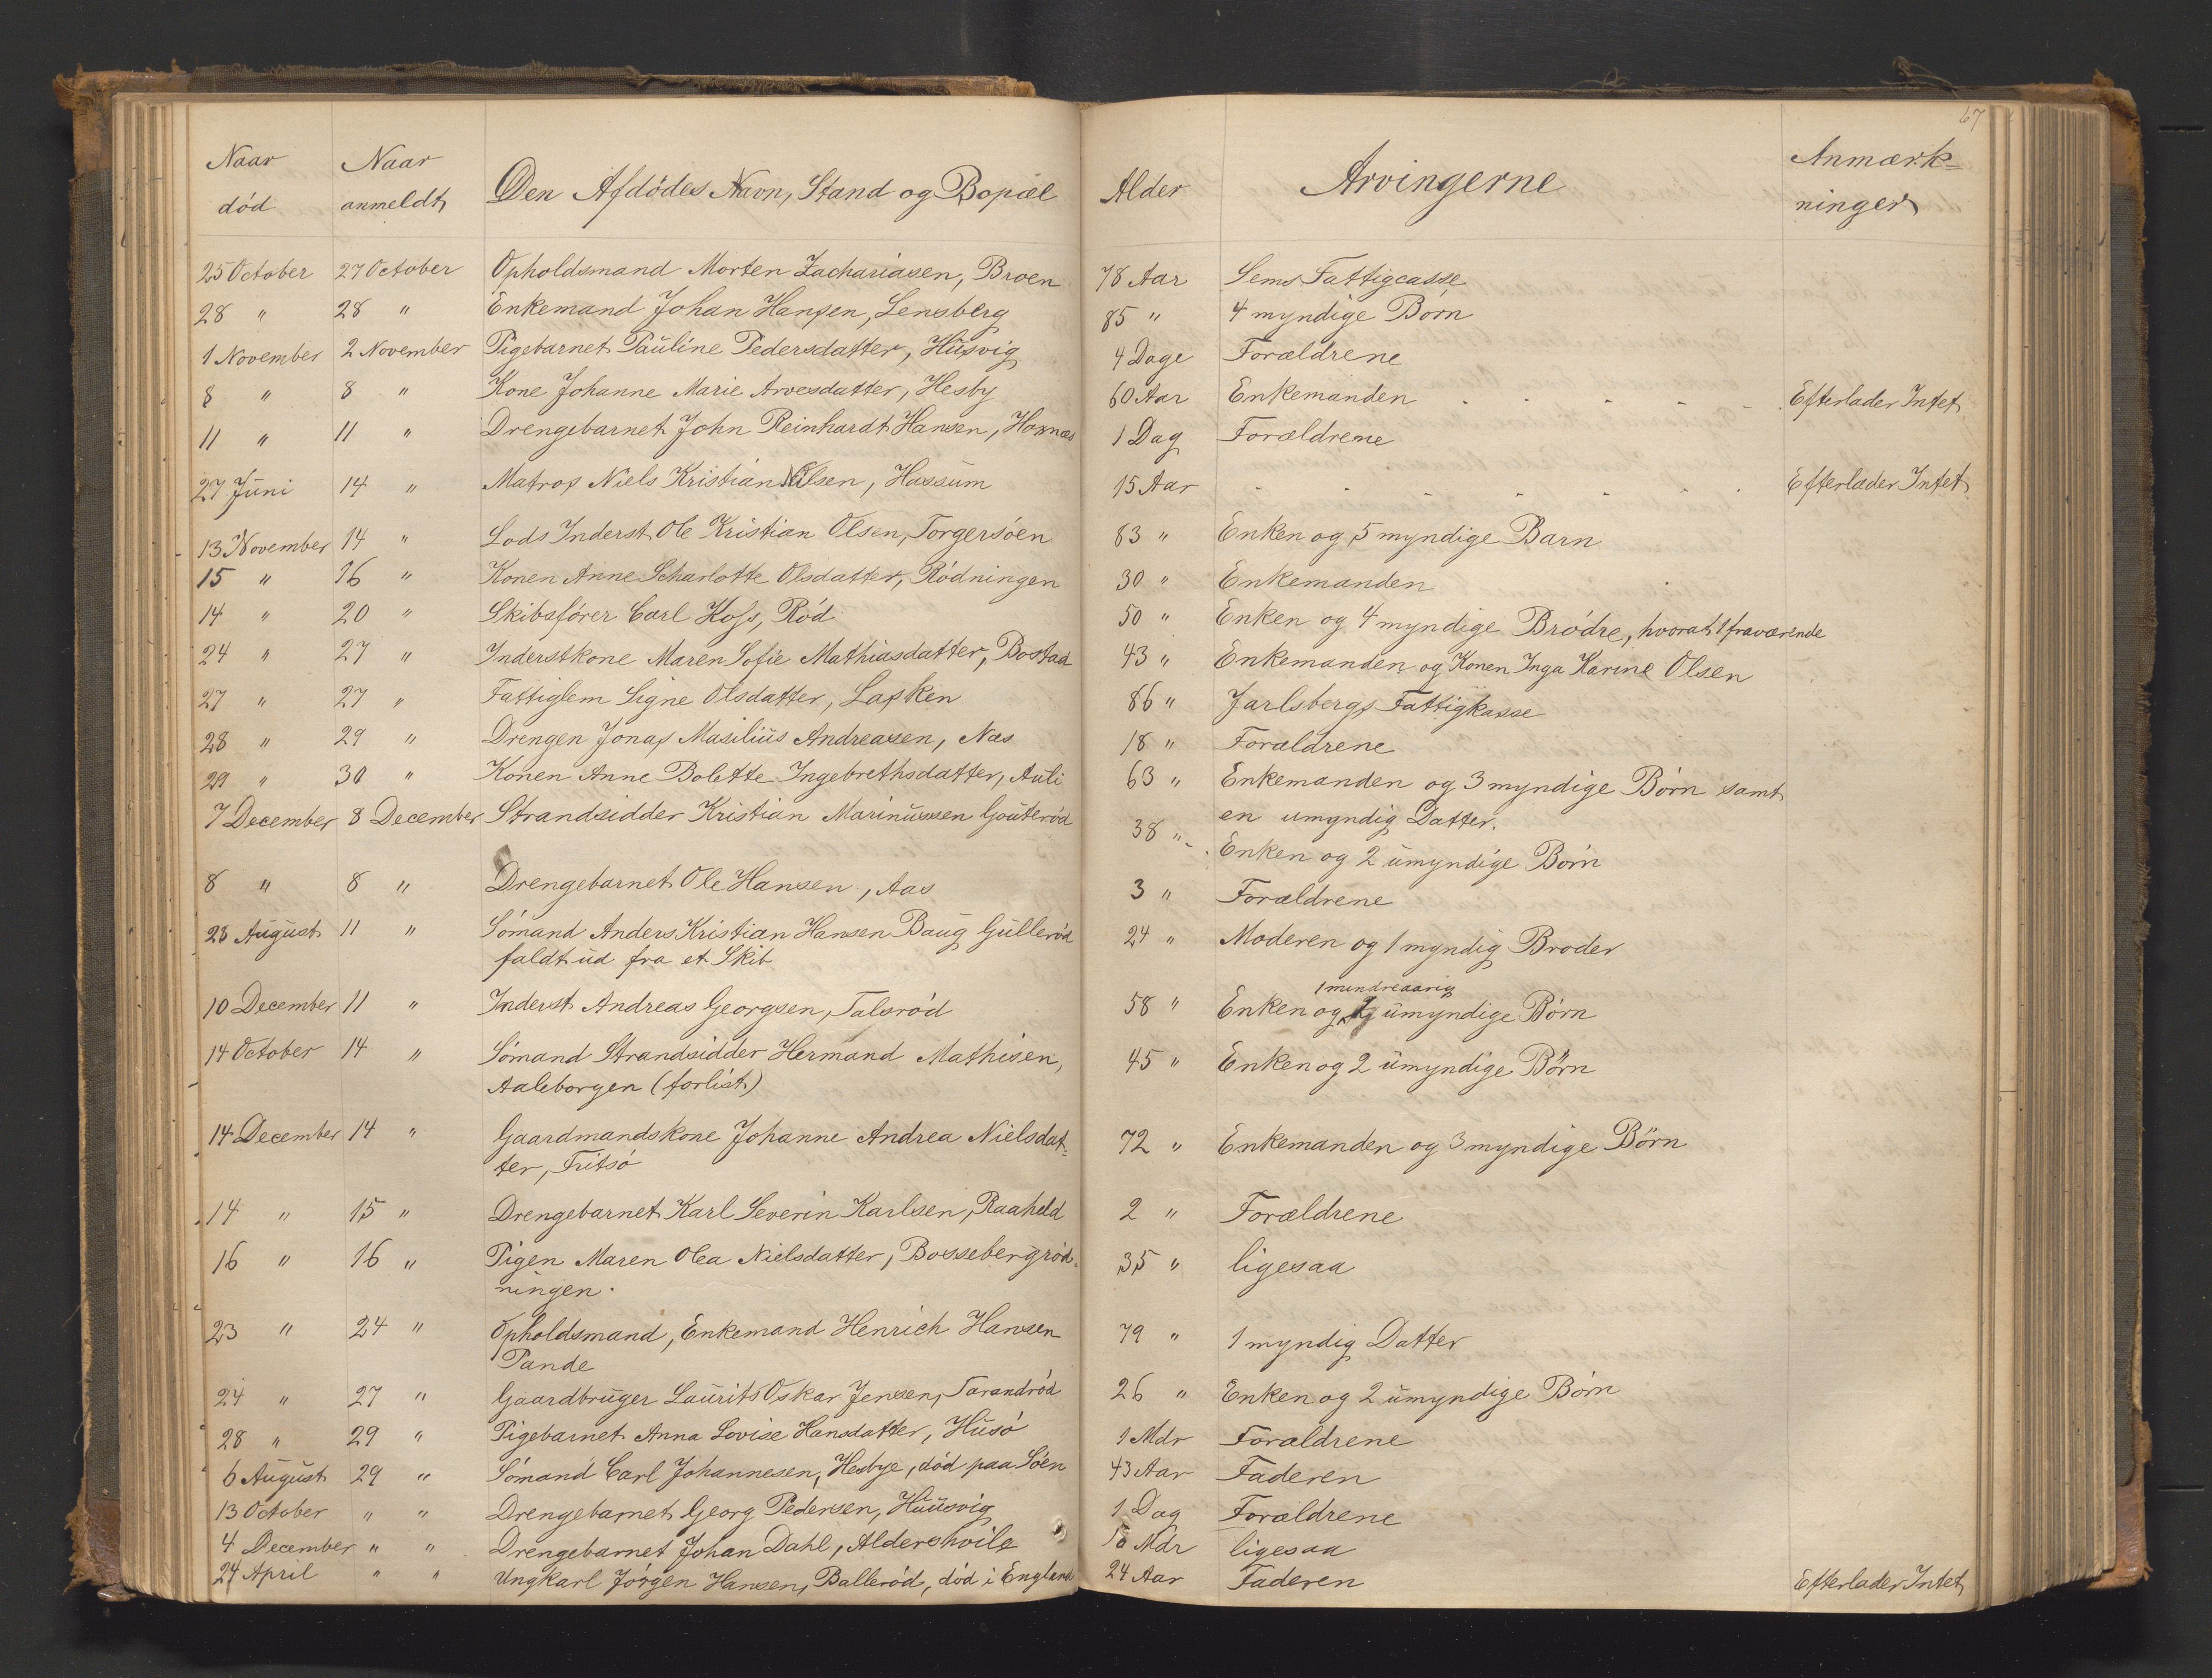 67
Naar død | Naar anmeldt | Den Afdødes Navn, Stand og Bopæl | Alder | Arvingerne | Anmærkninger
25 October | 27 October | Opholdsmand Morten Zachariasen, Broen | 78 Aar | Sems Fattigcasse
28 " | 28 " | Enkemand Johan Hansen, Lensberg | 85 " | 4 myndige Børn
1 November | 2 November | Pigebarnet Pauline Pedersdatter, Husvig | 4 Dage | Forældrene
8 " | 8 " | Kone Johanne Marie Arvesdatter, Hesby | 60 Aar | Enkemanden | Efterlader Intet
11 " | 11 " | Drengebarnet John Reinhardt Hansen, Hoxnæs | 1 Dag | Forældrene
27 Juni | 14 " | Matros Niels Kristian Nilsen, Hassum | 15 Aar | | Efterlader Intet
13 November | 14 " | Lods Inderst Ole Kristian Olsen, Torgersøen | 83 " | Enken og 5 myndige Barn
15 " | 16 " | Konen Anne Scharlotte Olsdatter, Rødningen | 30 " | Enkemanden
14 " | 20 " | Skibsfører Carl Hoss, Rød | 50 " | Enken og 4 myndige Brødre, hvoraf 1 fraværende
24 " | 27 " | Inderstkone Maren Sofie Mathiasdatter, Bostad | 43 " | Enkemanden og Konen Inga Karine Olsen
27 " | 27 " | Fattiglem Signe Olsdatter, Lasken | 86 " | Jarlsbergs Fattigkasse
28 " | 29 " | Drengen Jonas Masilius Andreasen, Næs | 18 " | Forældrene
29 " | 30 " | Konen Anne Bolette Ingebrethsdatter, Auli | 63 " | Enkemanden og 3 myndige Børn samt
en umyndig Datter.
7 December | 8 December | Strandsidder Kristian Marinussen Gouterød | 38 " | Enken og 2 umyndige Børn
8 " | 8 " | Drengebarnet Ole Hansen, Aas | 3 " | Forældrene
23 August | 11 " | Sømand Anders Kristian Hansen Baug Gullerød | 24 " | Moderen og 1 myndig Broder
faldt ud fra et Skib
10 December | 11 " | Inderst Andreas Georgsen, Talsrød | 58 " | Enken og 1 mindreaarig umyndige Børn
14 October | 14 " | Sømand Strandsidder Hermand Mathisen, | 45 " | Enken og 2 umyndige Børn
Aaleborgen (forlist)
14 December | 14 " | Gaardmandskone Johanne Andrea Nielsdat- | 72 " | Enkemanden og 3 myndige Børn
ter, Fritsø
14 " | 15 " | Drengebarnet Karl Severin Karlsen, Raaheld | 2 " | Forældrene
16 " | 16 " | Pigen Maren Olea Nielsdatter, Bossebergrød- | 35 " | ligesaa
ningen.
23 " | 24 " | Opholdsmand, Enkemand Henrich Hansen | 79 " | 1 myndig Datter
Pande
24 " | 27 " | Gaardbruger Laurits Oskar Jensen, Tarandrød | 26 " | Enken og 2 umyndige Børn
28 " | 29 " | Pigebarnet Anna Lovise Hansdatter, Husø | 1 Mdr | Forældrene
6 August | 29 " | Sømand Carl Johannesen, Hesbye, død paa Søen | 43 Aar | Faderen
13 October | " " | Drengebarnet Georg Pedersen, Huusvig | 1 Dag | Forældrene
4 December | " " | Drengebarnet Johan Dahl, Aldershvile | Mdr | ligesaa
24 April | " " | Ungkarl Jørgen Hansen, Ballerød, død i England | 24 Aar | Faderen | Efterlader Intet